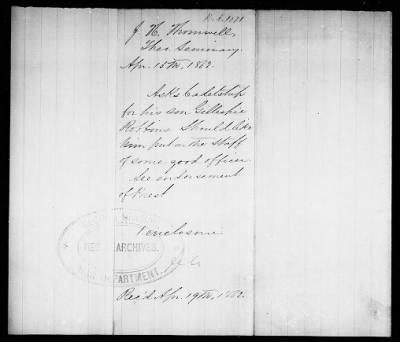 J. H. Thornwell,
Theo. Seminary.
Apr. 15th, 1862.
Asks Cadetship
for his son Gillespie
Robbins Should like
him put on the staff
of some good officer
See endorsement
of Prest
1 enclosure
ARCHIVES.
DEPARTMENT.
Rec'd Apr. 19th, 1862.